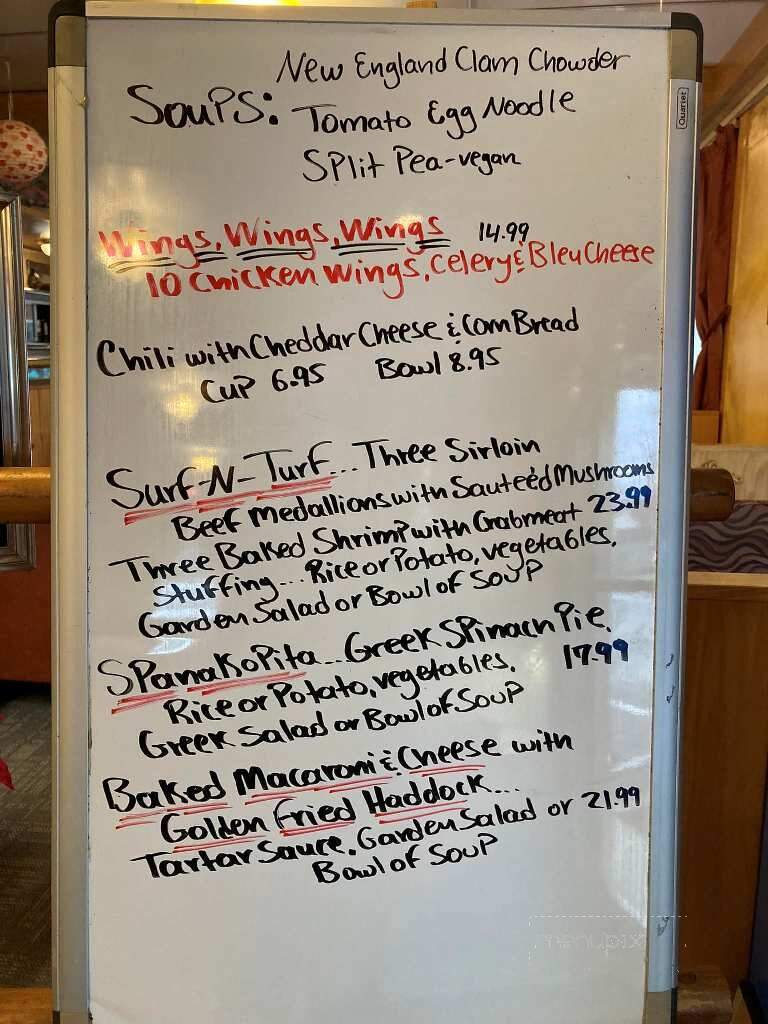 New England Clam Chowder
Soups: Tomato Egg Noodle
Split Pea-vegan
Wings, Wings, Wings 14.99
10 Chicken Wings, Celery & Bleu Cheese
Chili with Cheddar Cheese & Corn Bread
Cup 6.95 Bowl 8.95
Surf-N-Turf... Three Sirloin
Beef Medallions with Sauteéd Mushrooms
Three Baked Shrimp with Crabmeat 23.99
Stuffing... Rice or Potato, vegetables,
Garden Salad or Bowl of Soup
Spanakopita... Greek Spinach Pie,
Rice or Potato, vegetables, 17.99
Greek Salad or Bowl of Soup
Baked Macaroni & Cheese with
Golden Fried Haddock...
Tartar Sauce, Garden Salad or 21.99
Bowl of Soup
Quartet
menupix